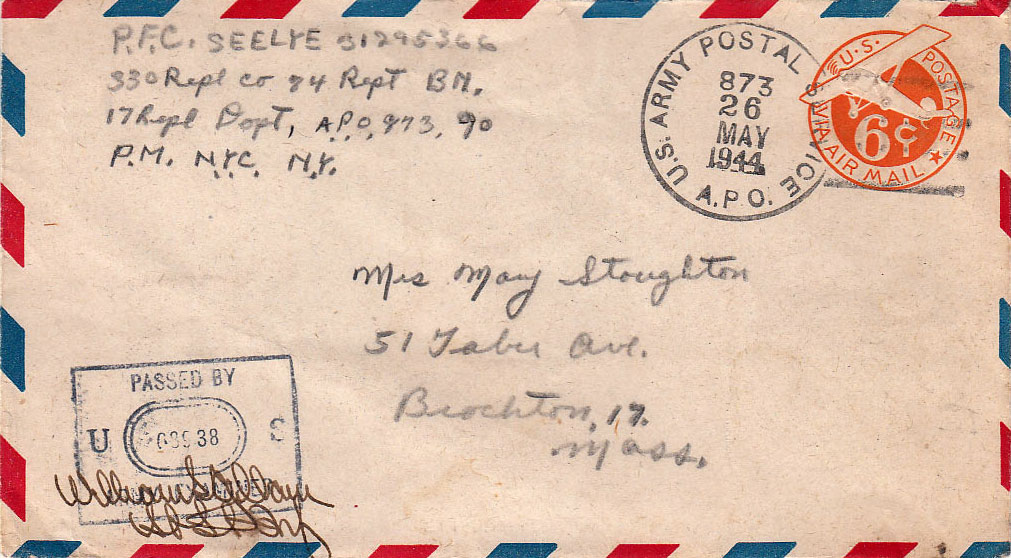 P.F.C. SEELYE 31295366
330 Repl Co 74 Rept BN.
17 Repl Dept, A.P.O. 873, 90
P.M. N.Y.C. N.Y.
U.S. ARMY POSTAL SERVICE
873
26
MAY
1944
A.P.O.
U.S. POSTAGE
6¢
VIA AIR MAIL
Mrs May Stoughton
51 Taber Ave.
Brockton, 17.
Mass.
PASSED BY
U S
38
William